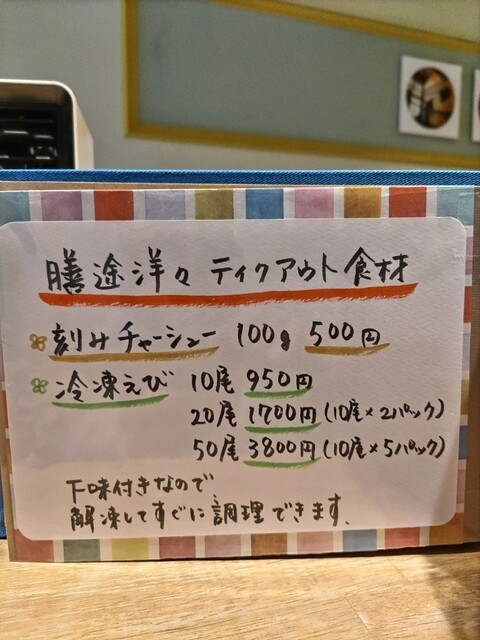 膳途洋々 ティクアウト食材
刻みチャーシュー 100g 500円
冷凍えび 10尾 950円
20尾 1700円(10尾×2パック)
50尾 3800円(10尾×5パック)
下味付きなので
解凍してすぐに調理できます。